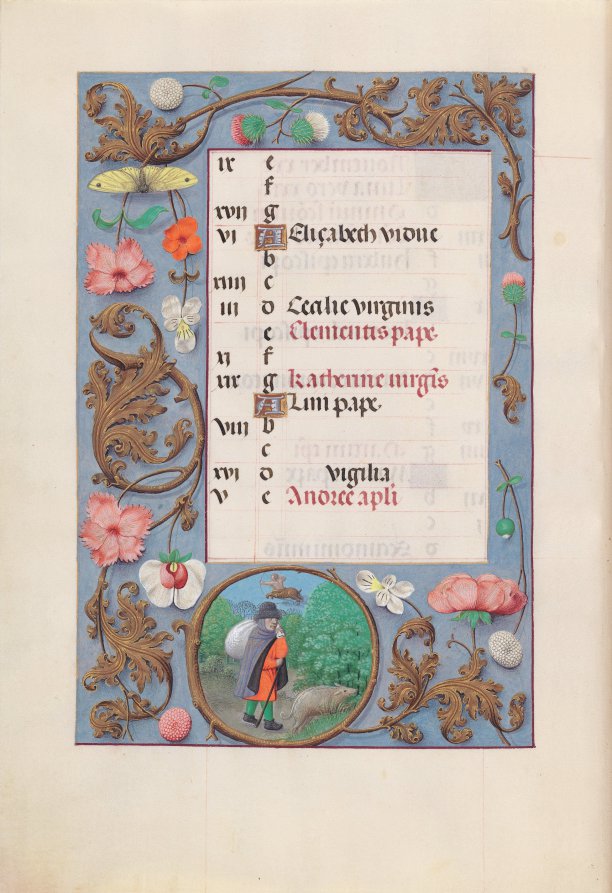 ix e
f
xvii g
vi A Elizabeth vidue
b
xiiii c
iii d Cecilie virginis
e Clementis pape.
xi f
xix g Katherine virgis
A Lini pape.
viii b
c
xvi d vigilia
v e Andree apli